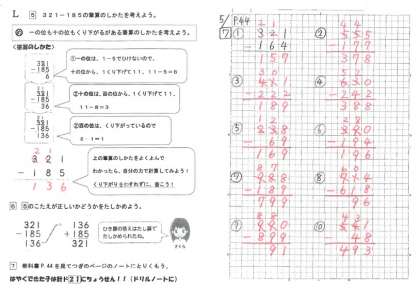 L 5 321－185の筆算のしかたを考えよう。
め 一の位も十の位もくり下がるがある筆算のしかたを考えよう。
＜筆算のしかた＞
321
-185
6
①一の位は、1－5でひけないので、
十の位から、1くり下げて11、11－5＝6
321
-185
36
②十の位は、百の位から、1くり下げて11、
11－8＝3
321
-185
136
③百の位は、くり下がっているので
2－1＝1
2 1
321
-185
136
上の筆算のしかたをよくよんで
わかったら、自分の力で計算してみよう！
くり下がりをわすれずに、書こう！
6 5のこたえが正しいかどうかをたしかめよう。
321
-185
136
136
+185
321
ひき算の答えはたし算で
たしかめられたね。
さくら
7 教科書P.44を見てつぎのページのノートにとりくもう。
はやくできた子は計ド21にちょうせん！！（ドリルノートに）
5/ P.44
7 ①
2 1
321
-164
157
②
4 4
555
-177
378
③
-222
189
④
-242
388
⑤
-69
169
⑥
-194
196
⑦
189
⑧
-618
⑨
-899
91
⑩
541
-48
493